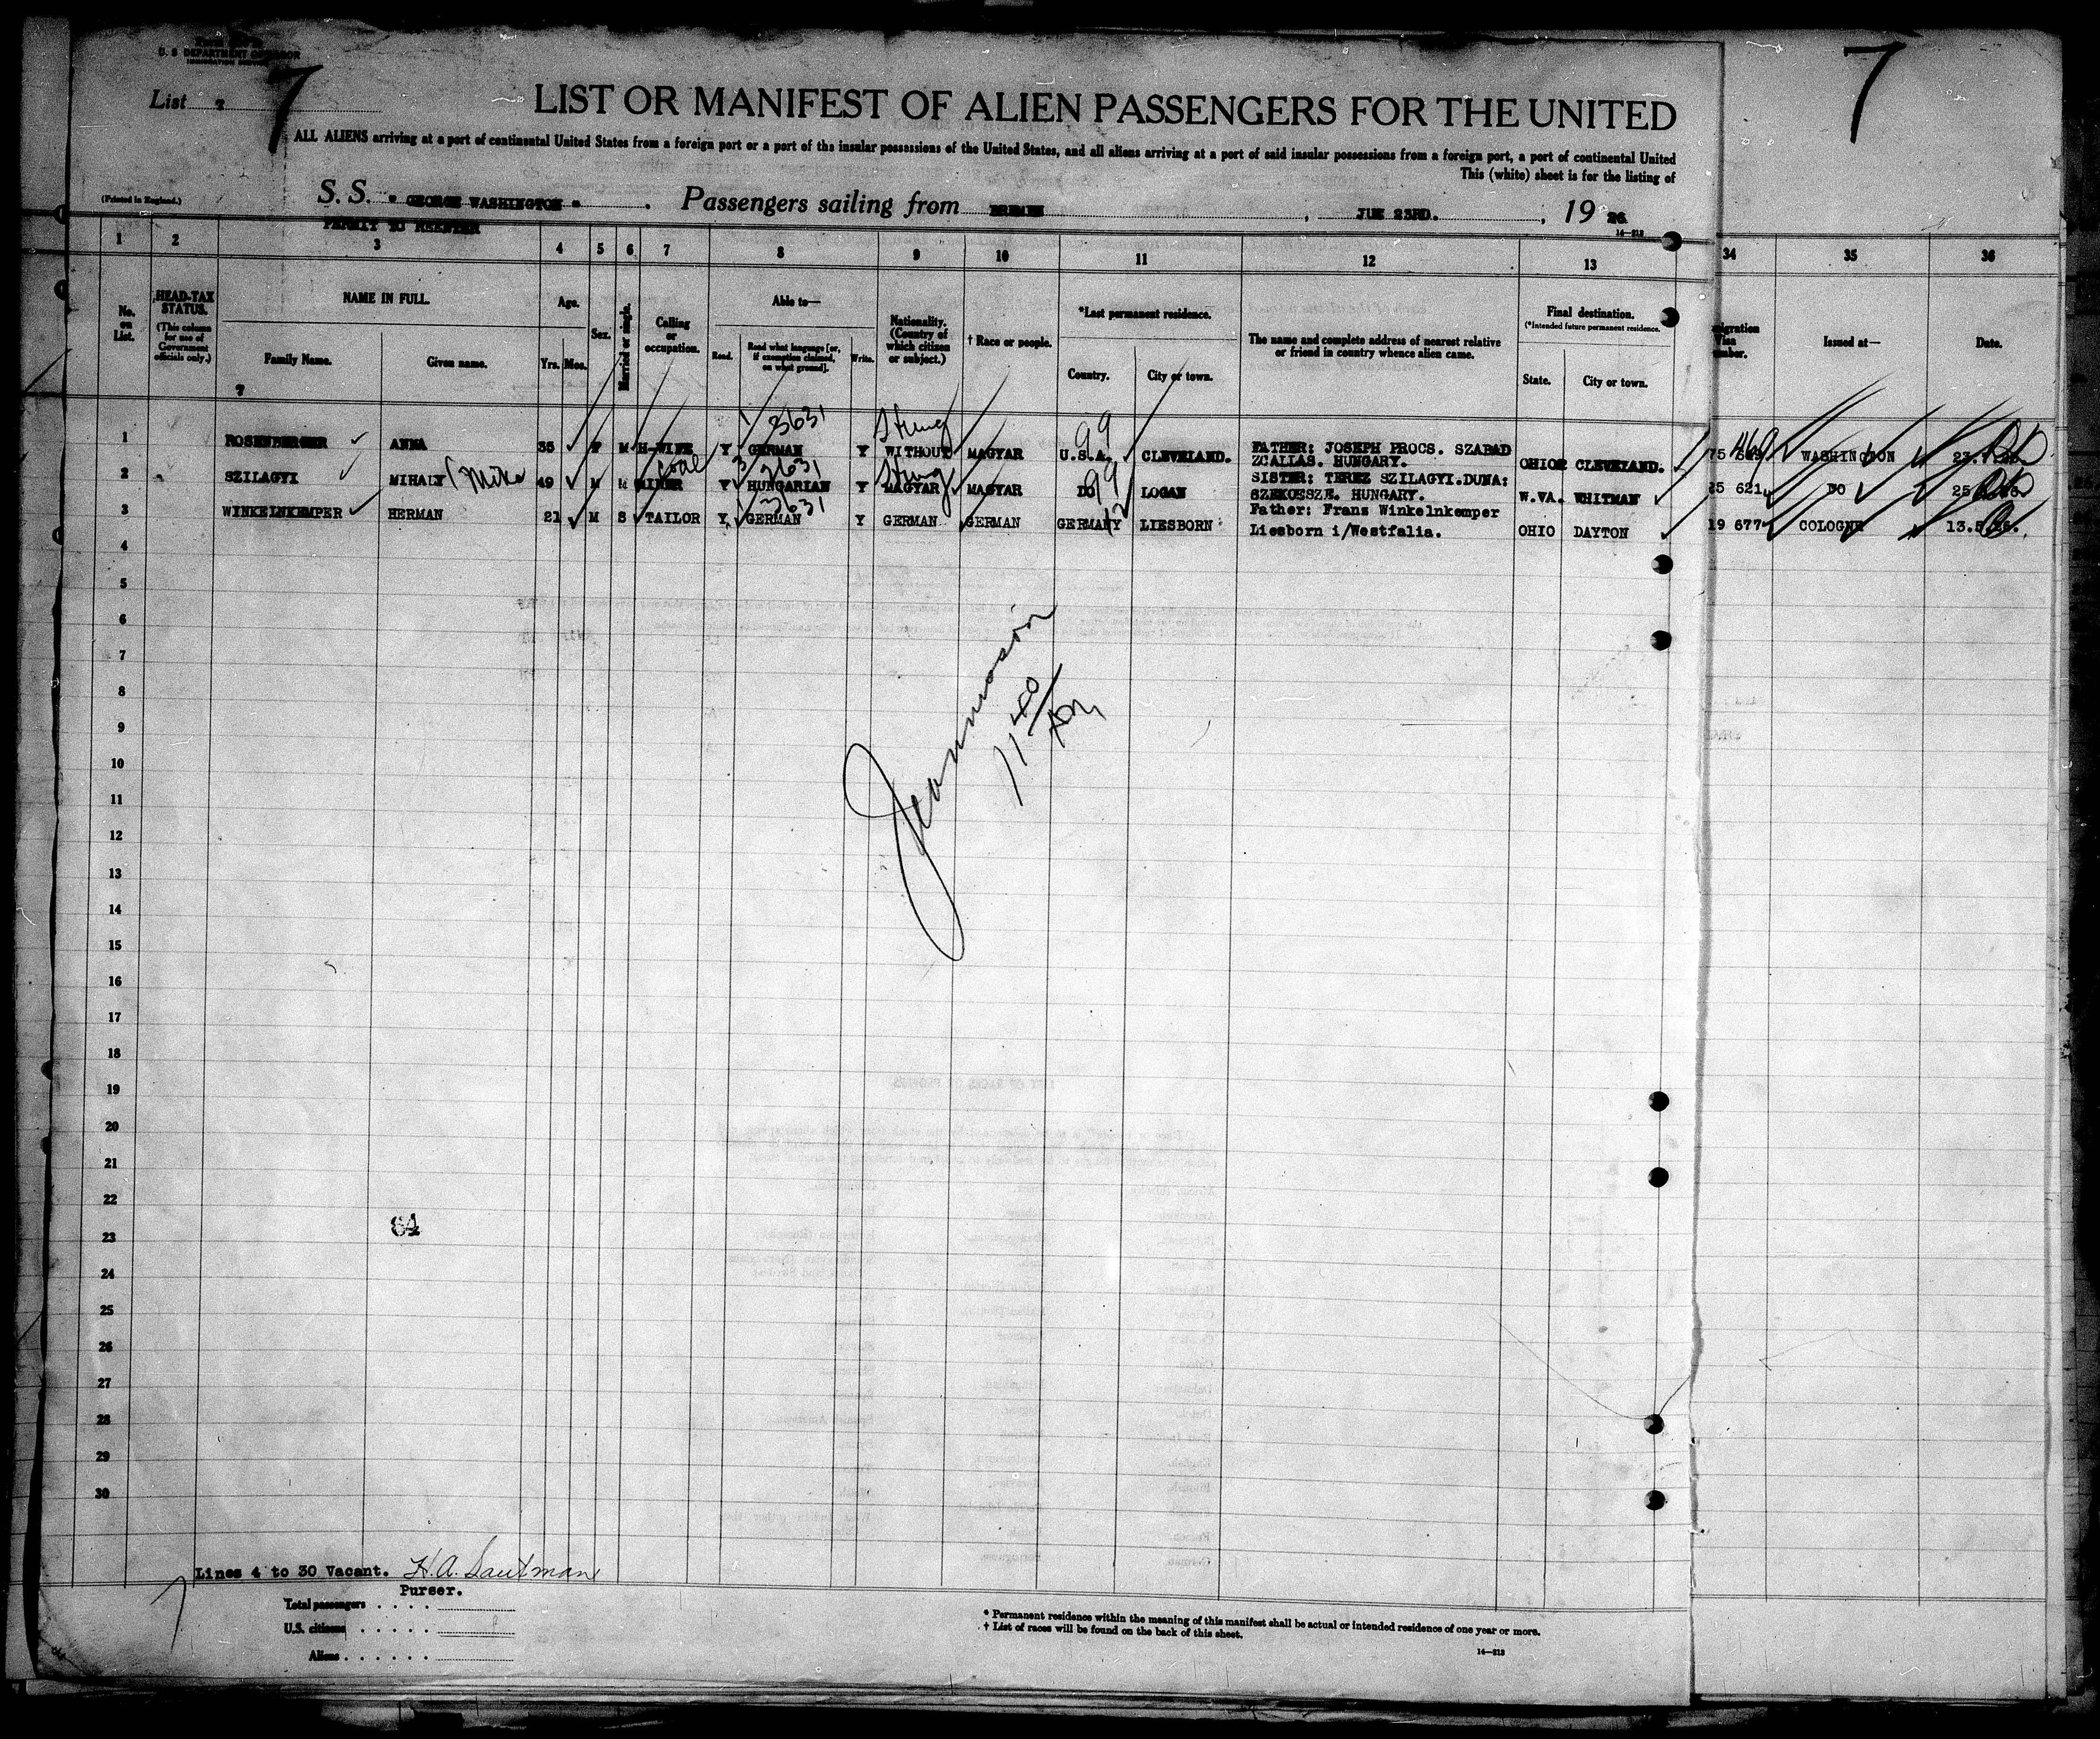 U. S. DEPARTMENT OF LABOR
IMMIGRATION SERVICE
List 7
7
7
LIST OR MANIFEST OF ALIEN PASSENGERS FOR THE UNITED
ALL ALIENS arriving at a port of continental United States from a foreign port or a port of the insular possessions of the United States, and all aliens arriving at a port of said insular possessions from a foreign port, a port of continental United
This (white) sheet is for the listing of
(Printed in England.)
S. S. " GEORGE WASHINGTON " . Passengers sailing from BREMEN , JUNE 23RD. , 19 26.
14—213
PERMIT TO REENTER
1 2 3 4 5 6 7 8 9 10 11 12 13 34 35 36
No. on List.
HEAD-TAX STATUS.
(This column for use of Government officials only.)
NAME IN FULL.
Family Name. Given name.
Age.
Yrs. Mos.
Sex.
Married or single.
Calling or occupation.
Able to—
Read. Read what language [or, if exemption claimed, on what ground]. Write.
Nationality. (Country of which citizen or subject.)
† Race or people.
*Last permanent residence.
Country. City or town.
The name and complete address of nearest relative or friend in country whence alien came.
Final destination.
(*Intended future permanent residence.
State. City or town.
migration Visa number.
Issued at—
Date.
7
3631
99
1 ROSENBERGER ANNA 35 F M H-WIFE Y GERMAN Y WITHOUT MAGYAR U.S.A. CLEVELAND. FATHER: JOSEPH PROCS. SZABAD
ZCALLAS. HUNGARY. OHIO CLEVELAND. 75 WASHINGTON 23.
Coal 3631
99
2 SZILAGYI MIHALY (Mike 49 M M MINER Y HUNGARIAN Y MAGYAR MAGYAR DO LOGAN SISTER: TEREZ SZILAGYI.DUNA:
SZEKCSSZE. HUNGARY. W.VA. WHITMAN 25 621 DO 25
3631
3 WINKELNKEMPER HERMAN 21 M S TAILOR Y GERMAN Y GERMAN GERMAN GERMANY LIESBORN Father: Frans Winkelnkemper
Liesborn i/Westfalia. OHIO DAYTON 19 677 COLOGNE 13.5.26.
4
5
6
7
8
9
10
11
12
13
14
15
16
17
18
19
20
21
22
23
24
25
26
27
28
29
30
11 40/AM
64
Lines 4 to 30 Vacant. H.A. Sautman
Purser.
Total passengers . . . .
U.S. citizens . . . . .
Aliens . . . . . .
* Permanent residence within the meaning of this manifest shall be actual or intended residence of one year or more.
† List of races will be found on the back of this sheet.
14—213